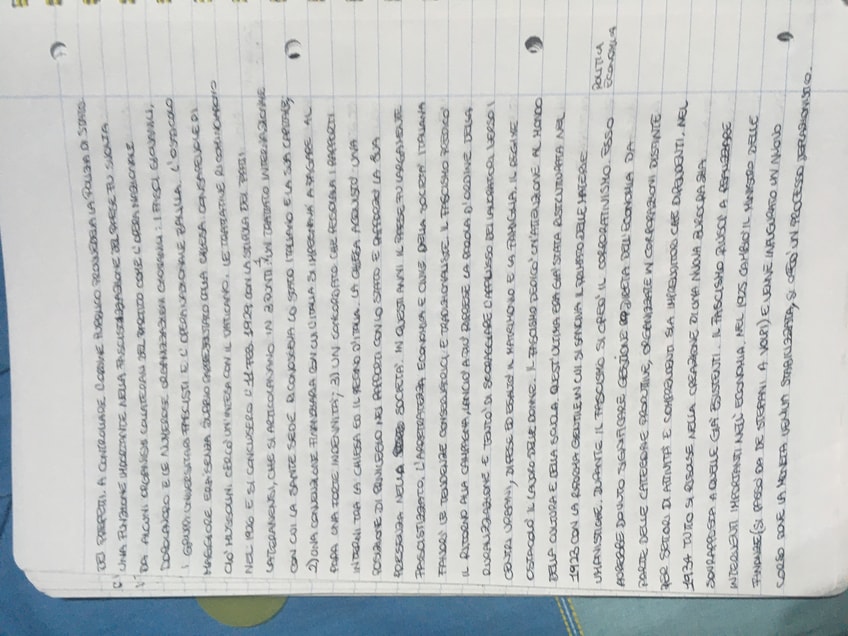 DEI PREFETTI. A CONTROLLARE L'ORDINE PUBBLICO PROVVEDEVA LA POLIZIA DI STATO.
UNA FUNZIONE IMPORTANTE NELLA FASCISTIZZAZIONE DEL PAESE FU SVOLTA
DA ALCUNI ORGANISMI COLLATERALI DEL PARTITO COME L'OPERA NAZIONALE
DOPOLAVORO E LE NUMEROSE ORGANIZZAZIONI GIOVANILI: I FASCI GIOVANILI,
I GRUPPI UNIVERSITARI FASCISTI E L'OPERA NAZIONALE BALILLA. L'OSTACOLO
MAGGIORE ERA SENZA DUBBIO RAPPRESENTATO DALLA CHIESA. CONSAPEVOLE DI
CIO' MUSSOLINI CERCO' UN'INTESA CON IL VATICANO. LE TRATTATIVE SI COMINCIARONO
NEL 1926 E SI CONCLUSERO L'11 FEB 1929 CON LA STIPULA DEI PATTI
LATERANENSI, CHE SI ARTICOLAVANO IN 3 PUNTI: 1) UN TRATTATO INTERNAZIONALE
CON CUI LA SANTA SEDE RICONOSCEVA LO STATO ITALIANO E LA SUA CAPITALE;
2) UNA CONVENZIONE FINANZIARIA CON CUI L'ITALIA SI IMPEGNAVA A PAGARE AL
PAPA UNA FORTE INDENNITA'; 3) UN CONCORDATO CHE REGOLAVA I RAPPORTI
INTERNI TRA LA CHIESA ED IL REGNO D'ITALIA. LA CHIESA ACQUISTO' UNA
POSIZIONE DI PRIVILEGIO NEI RAPPORTI CON LO STATO E RAFFORZO' LA SUA
PRESENZA NELLA SOCIETA'. IN QUESTI ANNI IL PAESE FU LARGAMENTE
FASCISTIZZATO, L'ARRETRATEZZA ECONOMICA E CIVILE DELLA SOCIETA' ITALIANA
FAVORI' LE TENDENZE CONSERVATRICI E TRADIZIONALISTE. IL FASCISMO PREDICO'
IL RITORNO ALLA CAMPAGNA, LANCIO' LA PAROLA D'ORDINE DELLA
RURALIZZAZIONE E TENTO' DI SCORAGGIARE L'AFFLUSSO DEI LAVORATORI VERSO I
CENTRI URBANI, DIFESE ED ESALTO' IL MATRIMONIO E LA FAMIGLIA. IL REGIME
OSTACOLO' IL LAVORO DELLE DONNE. IL FASCISMO DEDICO' UN'ATTENZIONE AL MONDO
DELLA CULTURA E DELLA SCUOLA. QUEST'ULTIMA ERA GIA' STATA RISTRUTTURATA NEL
1923 CON LA RIFORMA GENTILE IN CUI SI SANCIVA IL PRIMATO DELLE MATERIE
UMANISTICHE. DURANTE IL FASCISMO SI CREO' IL CORPORATIVISMO. ESSO
POLITICA
ECONOMICA
AVREBBE DOVUTO SIGNIFICARE GESTIONE DIRETTA DELL'ECONOMIA DA
PARTE DELLE CATEGORIE PRODUTTIVE, ORGANIZZATE IN CORPORAZIONI DISTINTE
PER SETTORI DI ATTIVITA' E COMPRENDENTI SIA IMPRENDITORI CHE DIPENDENTI. NEL
1934 TUTTO SI RISOLSE NELLA CREAZIONE DI UNA NUOVA BUROCRAZIA
SOVRAPPOSTA A QUELLE GIA' ESISTENTI. IL FASCISMO RIUSCI' A REALIZZARE
INTERVENTI IMPORTANTI NELL'ECONOMIA. NEL 1925 CAMBIO' IL MINISTRO DELLE
FINANZE (SI PASSO' DA DE STEFANI A VOLPI) E VENNE INAUGURATO UN NUOVO
CORSO DOVE LA MONETA VENIVA STABILIZZATA, SI CREO' UN PROCESSO DEFLAZIONISTICO.